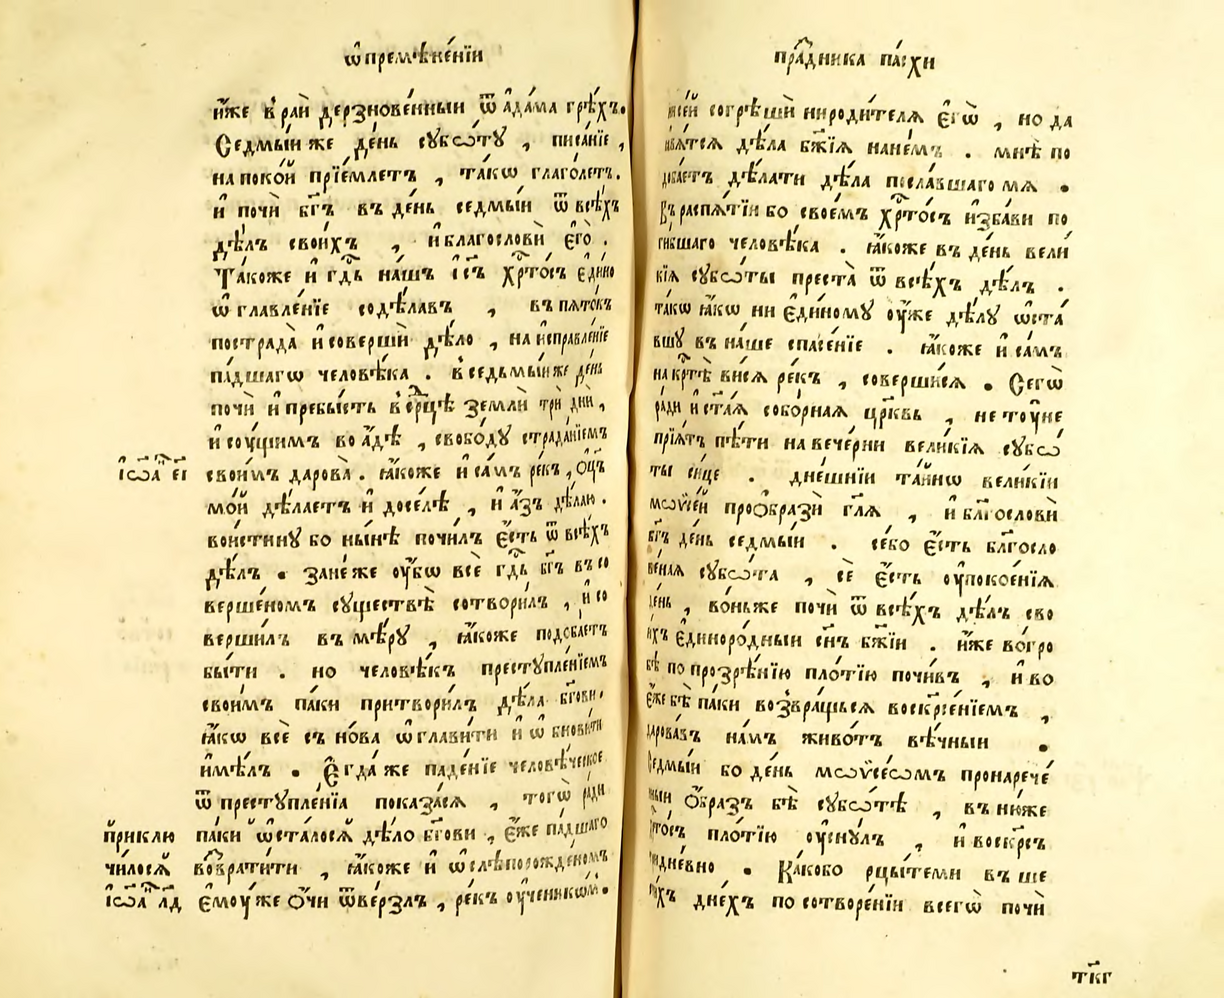 ѡ҆премѣне́нїи
и҆́же в҆ раѝ дерзнове́нныи ѿ а҆да́ма грѣ́хъ.
Седмы́и же де́нь сꙋбѡ́тꙋ , писа́нїе ,
на поко́й прїе́млетъ , та́кѡ глаго́летъ.
и҆ почѝ бг҃ъ въ де́нь седмы́и ѿ всѣ́хъ
дѣ́лъ свои́хъ , и҆ благословѝ є҆го̀ .
Та́коже и҆ гдⷭ҇ь на́шъ і҆с҃ъ хрⷭ҇то́съ є҆ди́но
ѡ҆главле́нїе содѣ́лавъ , въ пято́къ
пострада̀ и҆ совершѝ дѣ́ло , на и҆справле́нїе
па́дшагѡ человѣ́ка . в҆ седьмы́и же де́нь
почѝ и҆ пребы́сть в҆ срⷣцѣ землѝ трѝ днѝ ,
и҆ сꙋ́щимъ во а҆́дѣ , свобо́дꙋ страда́нїемъ
і҆ѡа҃ є҃і
свои́мъ дарова̀ . ꙗ҆́коже и҆ са́мъ ре́къ , ѻ҆ц҃ъ
мо́й дѣ́лаетъ и҆ досе́лѣ , и҆ а҆́зъ дѣ́лаю .
вои́стинꙋ бо ны́нѣ почи́лъ є҆́сть ѿ всѣ́хъ
дѣ́лъ . зане́же ᲂу҆́бѡ всѐ гдⷭ҇ь бг҃ъ въ со
верше́номъ сꙋществѣ̀ сотвори́лъ , и҆ со
верши́лъ въ мѣ́рꙋ , ꙗ҆́коже подоба́етъ
бы́ти . но человѣ́къ престꙋпле́нїемъ
свои́мъ па́ки притвори́лъ дѣ́ла бг҃ови .
ꙗ҆́кѡ всѐ съ но́ва ѡ҆глави́ти и҆ ѡ҆бнови́ти
и҆мѣ́лъ . Є҆гда́ же паде́нїе человѣ́ческое
ѿ престꙋпле́нїа показа́сѧ , тогѡ̀ ра́ди
приклю
па́ки ѡ҆ста́лосѧ дѣ́ло бг҃ови , є҆́же па́дшаго
чи́лосѧ
возврати́ти , ꙗ҆́коже и҆ ѡ҆ слѣпорожде́номъ
і҆ѡа҃ л҃д
є҆мꙋ́ же ѻ҆́чи ѿве́рзлъ , ре́къ ᲂу҆ченикѡ́мъ .
пра́здника па́схи
ни се́й согрѣшѝ ни роди́телѧ є҆гѡ̀ , но да
ꙗ҆вя́тсѧ дѣ́ла бж҃їѧ на не́мъ . мнѣ̀ по
доба́етъ дѣ́лати дѣ́ла посла́вшаго мѧ .
Въ распѧ́тїи бо свое́мъ хрⷭ҇то́съ и҆зба́ви по
ги́бшаго человѣ́ка . ꙗ҆́коже въ де́нь вели́
кїѧ сꙋбѡ́ты преста̀ ѿ всѣ́хъ дѣ́лъ .
та́кѡ ꙗ҆́кѡ ни є҆ди́номꙋ ᲂу҆́же дѣ́лꙋ ѡ҆ста́
вшꙋ въ на́ше спасе́нїе . ꙗ҆́коже и҆ са́мъ
на крⷭ҇тѣ̀ висѧ̀ ре́къ , соверши́сѧ . Сегѡ̀
ра́ди и҆ ст҃а́ѧ собо́рнаѧ цр҃квь , не тꙋ́не
прїѧ́тъ пѣ́ти на вече́рни вели́кїѧ сꙋбѡ́
ты си́це . дне́шнїи та́йнѡ вели́кїи
мѡѷсе́й проѻбразѝ гл҃ѧ , и҆ благⷭ҇ословѝ
бг҃ъ де́нь седмы́и . се́ бо є҆́сть блгⷭ҇осло
ве́наѧ сꙋбѡ́та , сѐ є҆́сть ᲂу҆покое́нїѧ
де́нь , во́ньже почѝ ѿ всѣ́хъ дѣ́лъ сво
и́хъ є҆диноро́дныи сн҃ъ бж҃їи . и҆́же во гро
бѣ̀ по прозрѣ́нїю пло́тїю почи́въ , и҆ во
є҆́же бѣ̀ па́ки возвра́щьсѧ воскрⷭ҇е́нїемъ ,
дарова́въ на́мъ живо́тъ вѣ́чныи .
Седмы́и бо де́нь мѡѷсе́ѡмъ пронарече́
ныи ѻ҆́бразъ бѣ̀ сꙋбѡ́тѣ , въ ню́же
хрⷭ҇то́съ пло́тїю ᲂу҆снꙋ́лъ , и҆ воскрⷭ҇съ
тридне́вно . Ка́ко бо рцы́те ми въ ше
сти́хъ дне́хъ по сотворе́нїи всегѡ̀ почѝ
тк҃г